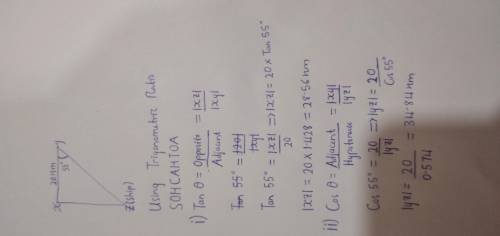 X 20nm Y
55°
Z(ship)
Using Trigonometric Ratio
SOHCAHTOA
i) Tan θ = Opposite = |xz|
Adjacent |xy|
Tan 55° =
|xy|
Tan 55° = |xz| => |xz| = 20 × Tan 55°
20
|xz| = 20 × 1.428 = 28.56nm
ii) Cos θ = Adjacent = |xy|
Hypotenuse |yz|
Cos 55° = 20 => |yz| = 20
|yz| Cos 55°
|yz| = 20 = 34.84nm
0.574